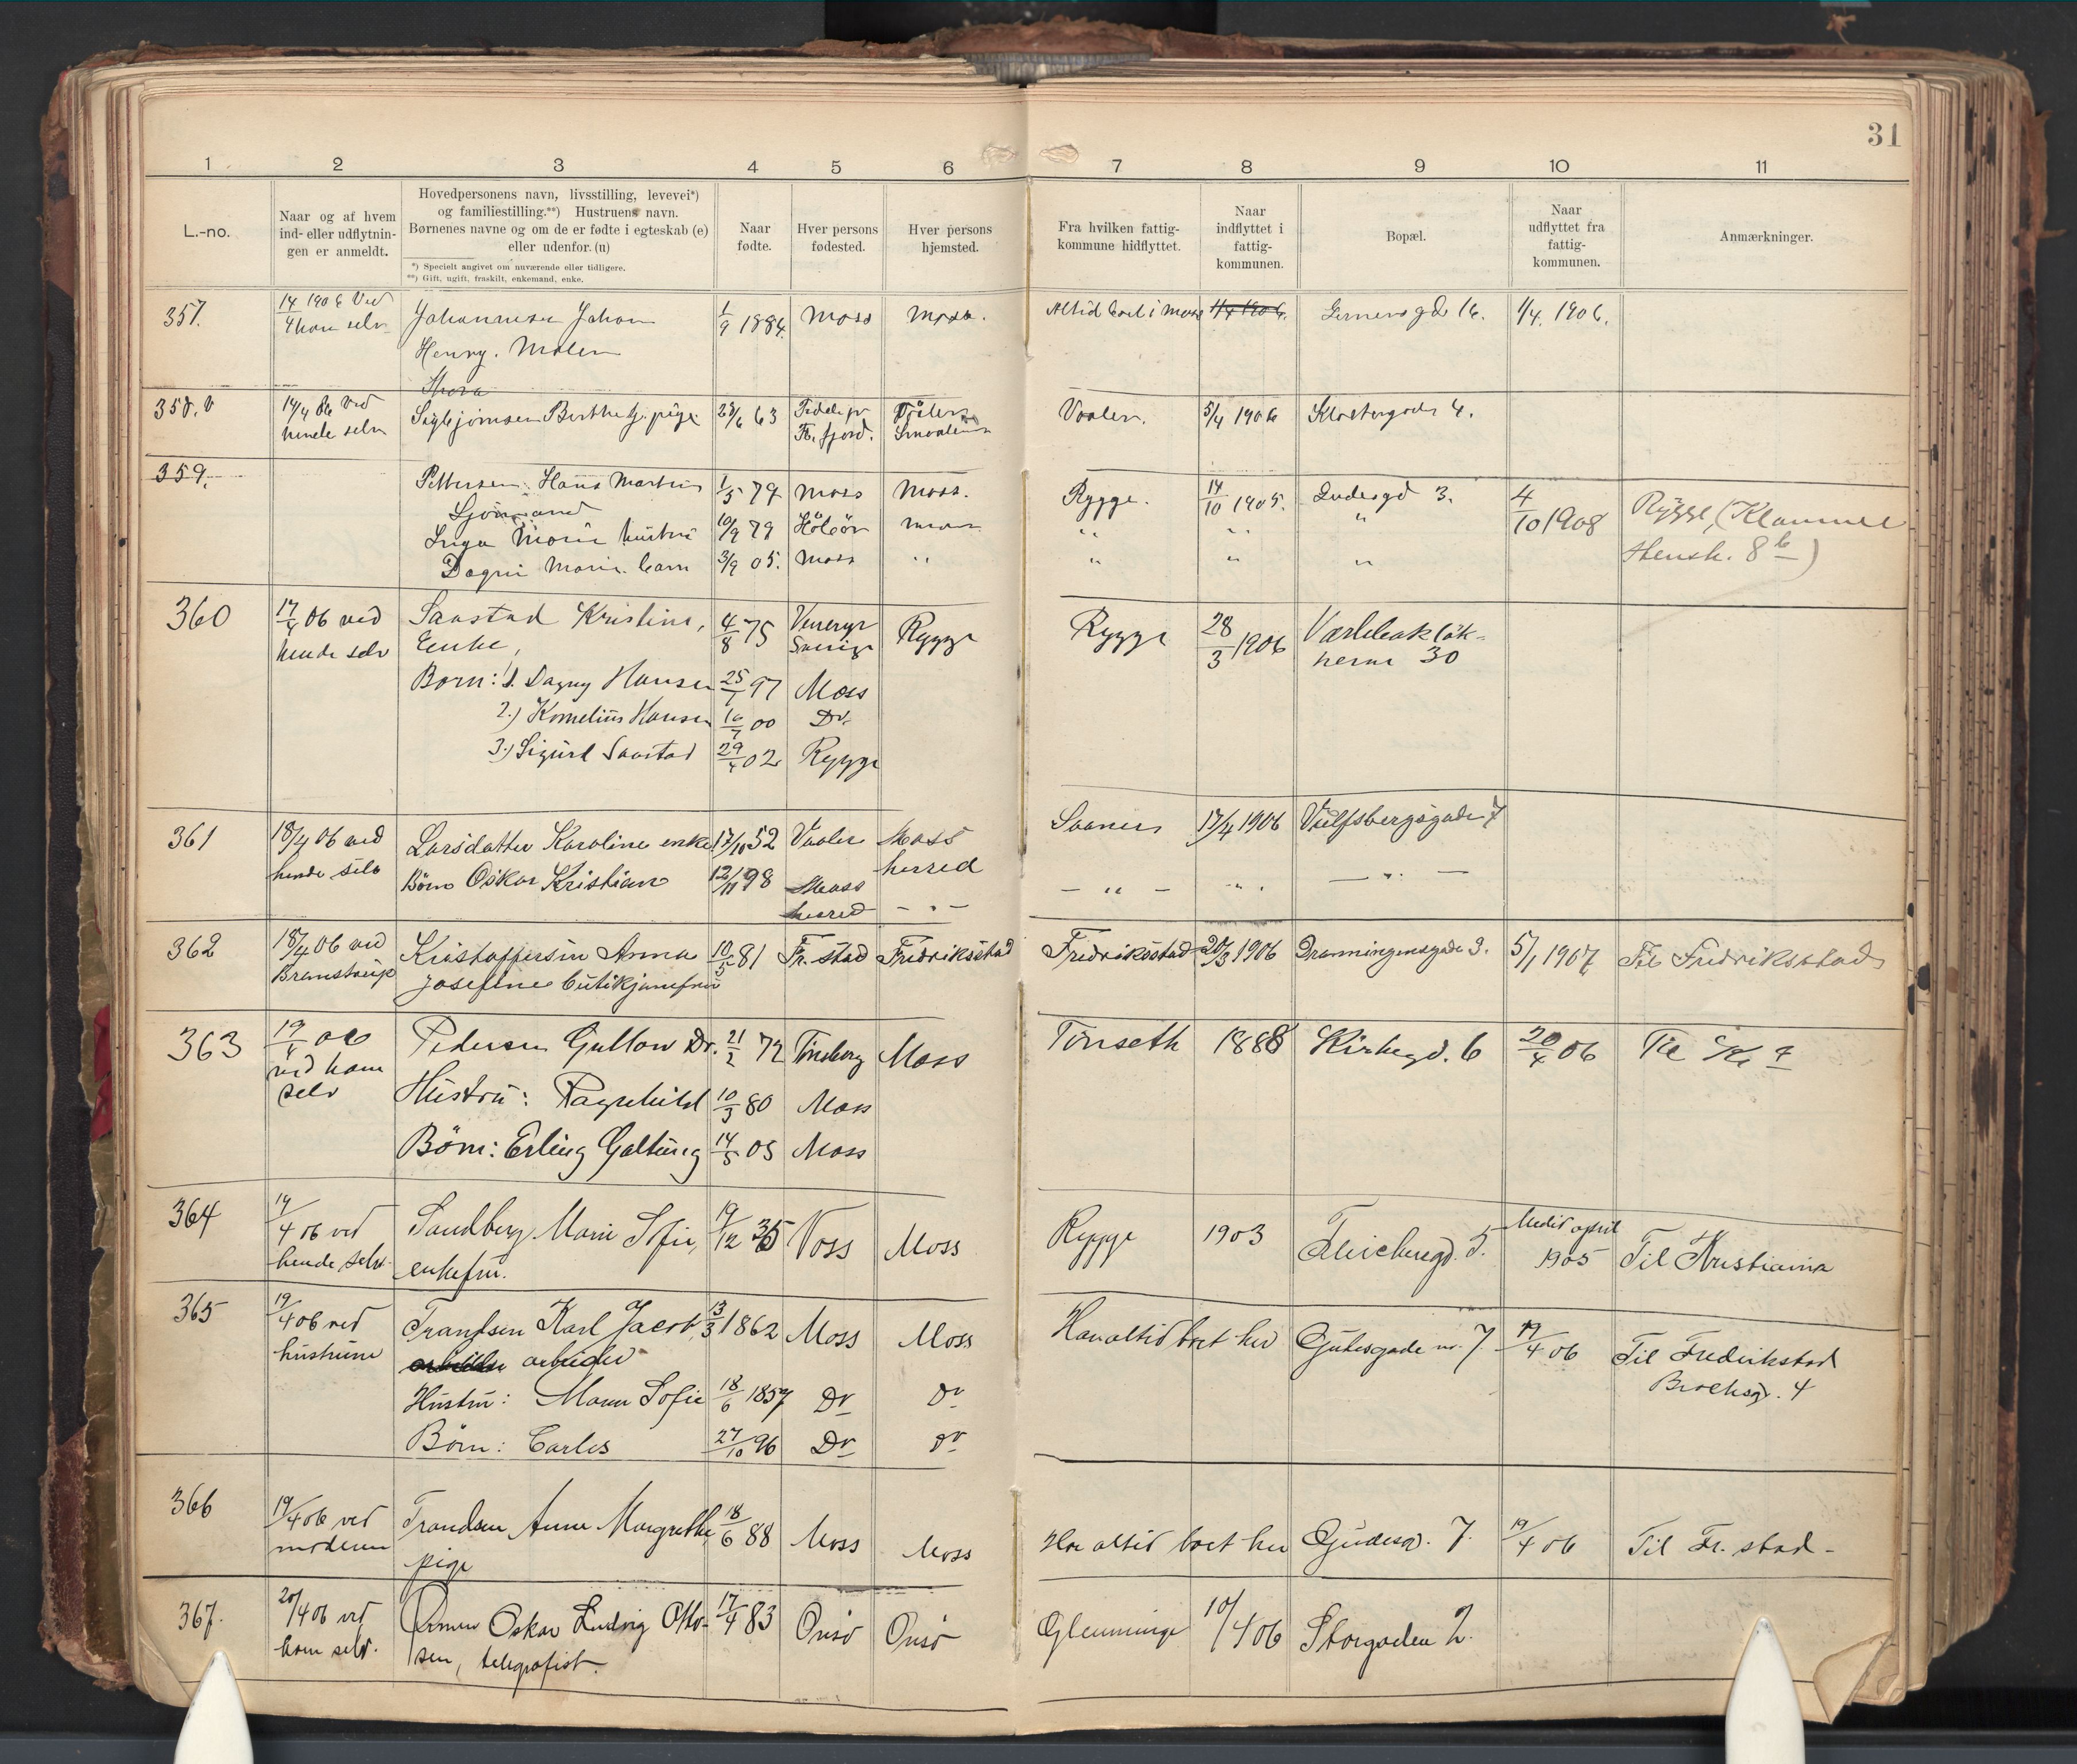 31
1 2 3 4 5 6 7 8 9 10 11
L.-no.
Naar og af hvem
ind- eller udflytnin-
gen er anmeldt.
Hovedpersonens navn, livsstilling, levevei*)
og familiestilling.**) Hustruens navn.
Børnenes navne og om de er fødte i egteskab (e)
eller udenfor. (u)
*) Specielt angivet om nuværende eller tidligere.
**) Gift, ugift, fraskilt, enkemand, enke.
Naar
fødte.
Hver persons
fødested.
Hver persons
hjemsted.
Fra hvilken fattig-
kommune hidflyttet.
Naar
indflyttet i
fattig-
kommunen.
Bopæl.
Naar
udflyttet fra
fattig-
kommunen.
Anmærkninger.
357. 14/4 1906 Ved ham selv Johannesen Johan 1/9 1884. Moss Moss. Altid boet i Moss 1/4 1906. 16. 1/4. 1906.
Henry. Maler
Thora
358. V 14/4 06 Ved hende selv Berthe pige 28/6 63 Vaaler. 5/4 1906 4.
359. Pettersen, Hans Martin 1/5 79 Moss Moss. Rygge. 14/10 1905. 3. 4/10 1908 Rygge, (
Sjømand
Inga Marie hustru 10/9 79 Hölen Moss " " "
Dagni Marie barn 3/9 05. Moss " " " "
8 b)
360 17/4 06 ved Saastad Kristine, 4/8 75 Rygge Rygge 28/3 1906
hende selv Enke, Sverige 30
Born: 1. Dagny Hansen 25/1 97 Moss
2.) Kornelius Hansen 16/7 00 Do.
3.) Sigurd Saastad 29/4 02 Rygge
361 18/4 06 ved Larsdatter Karoline enke 17/10 52 Vaaler Moss Saaner 17/4 1906 Vulfsbergsgade 7
hende selv herred
Børn Oskar Kristian 12/11 98 Moss
herred - " - - " - " - " -
362 18/4 06 ved Kristoffersen Anna 10/5 81 Fr. stad Fredriksstad Fredriksstad 20/3 1906 Dronningensgade 3. 5/1 1907 Til Fredriksstad
Branstrup Josefine butikjomfru
363 19/4 06 Pedersen Dr. 21/2 72 Tönsberg Moss Tönseth 1888 Kirkegd. 6 20/4 06 Til
ved ham Hustru: Ragnhild 10/3 80 Moss
selv
Börn: Erling Galtung 14/5 05 Moss
364 14/4 06 ved Sandberg Marie Sofie, 19/12 35 Voss Moss Rygge 1903 5. Medio april 1905 Til Kristiania
hende selv enkefru.
365 19/4 06 ved Frantsen Karl Jacob, 13/3 1862 Moss Moss Har altid boet her Gudesgade no. 7 19/4 06 Til Fredrikstad
hustruen arbeider 4
Hustru: Maren Sofie 18/6 1857 Do Do
Börn: Carlos 27/10 96 Do Do
366 19/4 06 ved Frandsen Anne Margrethe, 18/6 88 Moss Moss Har altid boet her Gudesgd. 7. 19/4 06 Til Fr. stad -
moderen pige
367. 20/4 06 ved Oskar Ludvig Otto- 17/4 83 Onsö Onsö Glemminge 10/4 06 Storgaden 2.
ham selv. sen, telegrafist.